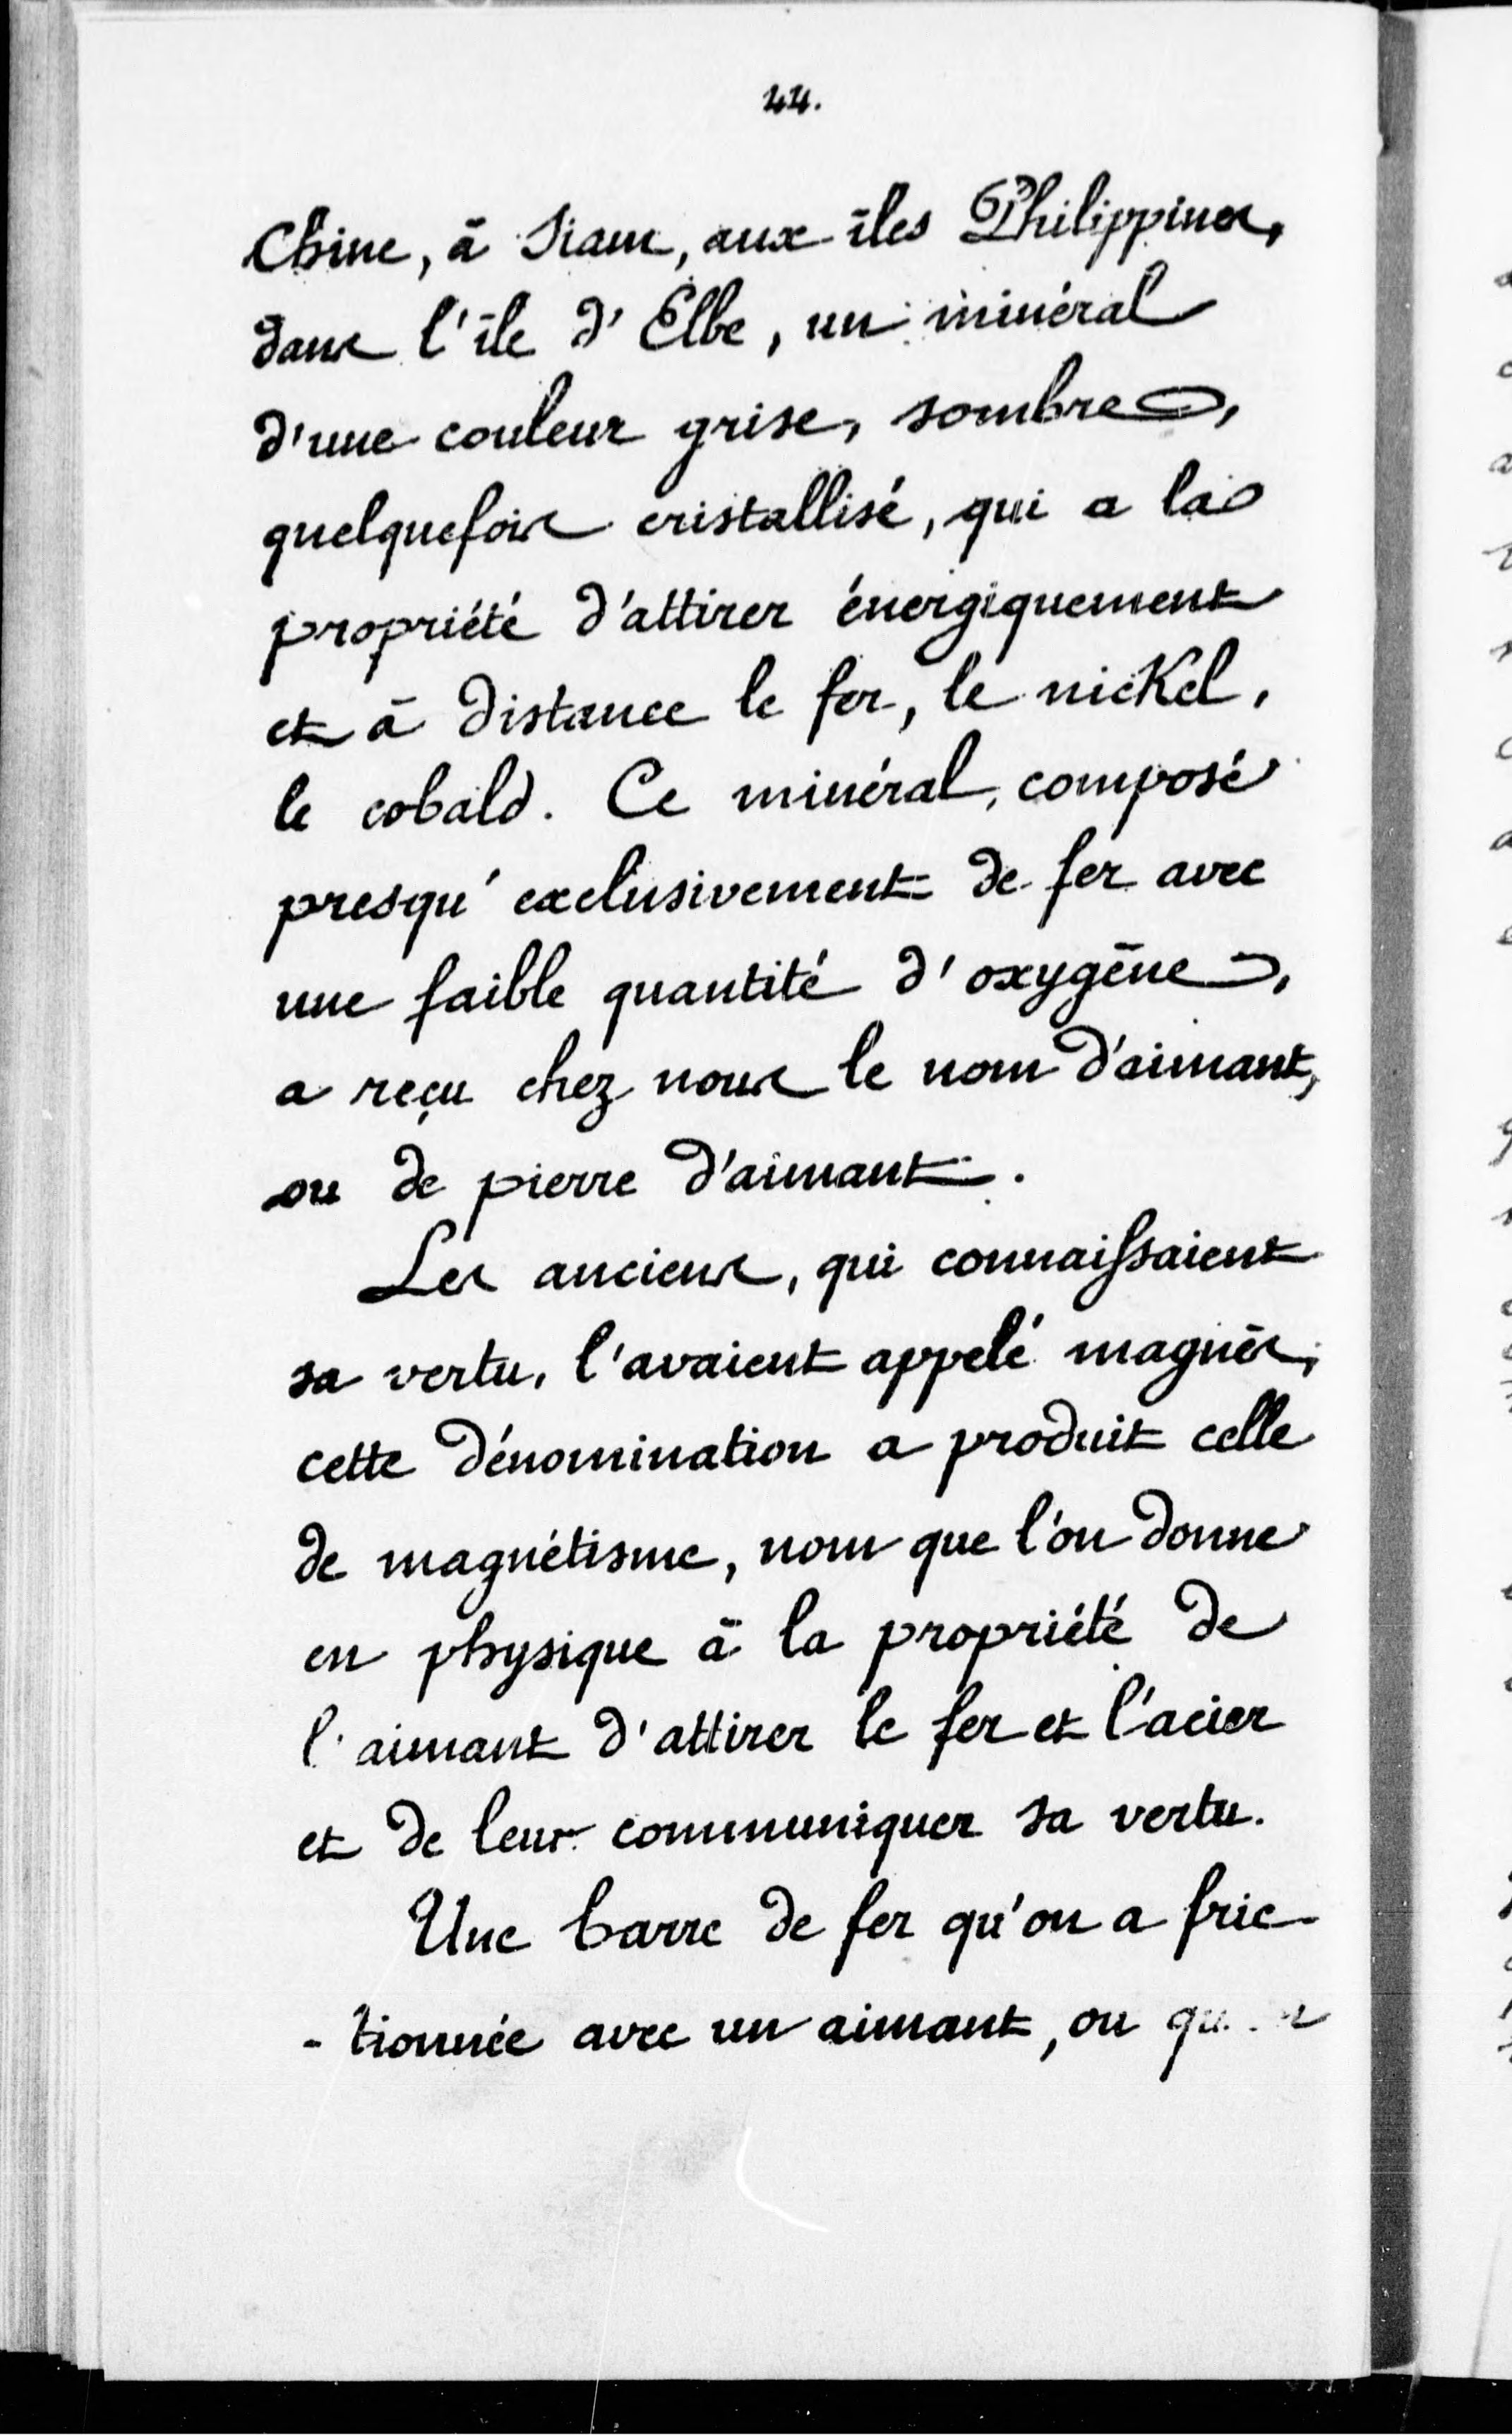 44.
Chine, à Siam, aux îles Philippines,
dans l'île d'Elbe, un minéral
d'une couleur grise, sombre,
quelquefois cristallisé, qui a la
propriété d'attirer énergiquement
et à distance le fer, le nickel,
le cobald. Ce minéral, composé
presqu'exclusivement de fer avec
une faible quantité d'oxygène,
a reçu chez nous le nom d'aimant,
ou de pierre d'aimant.
Les anciens, qui connaissaient
sa vertu, l'avaient appelé magnès,
cette dénomination a produit celle
de magnétisme, nom que l'on donne
en physique à la propriété de
l'aimant d'attirer le fer et l'acier
et de leur communiquer sa vertu.
Une barre de fer qu'on a fric-
-tionnée avec un aimant, ou